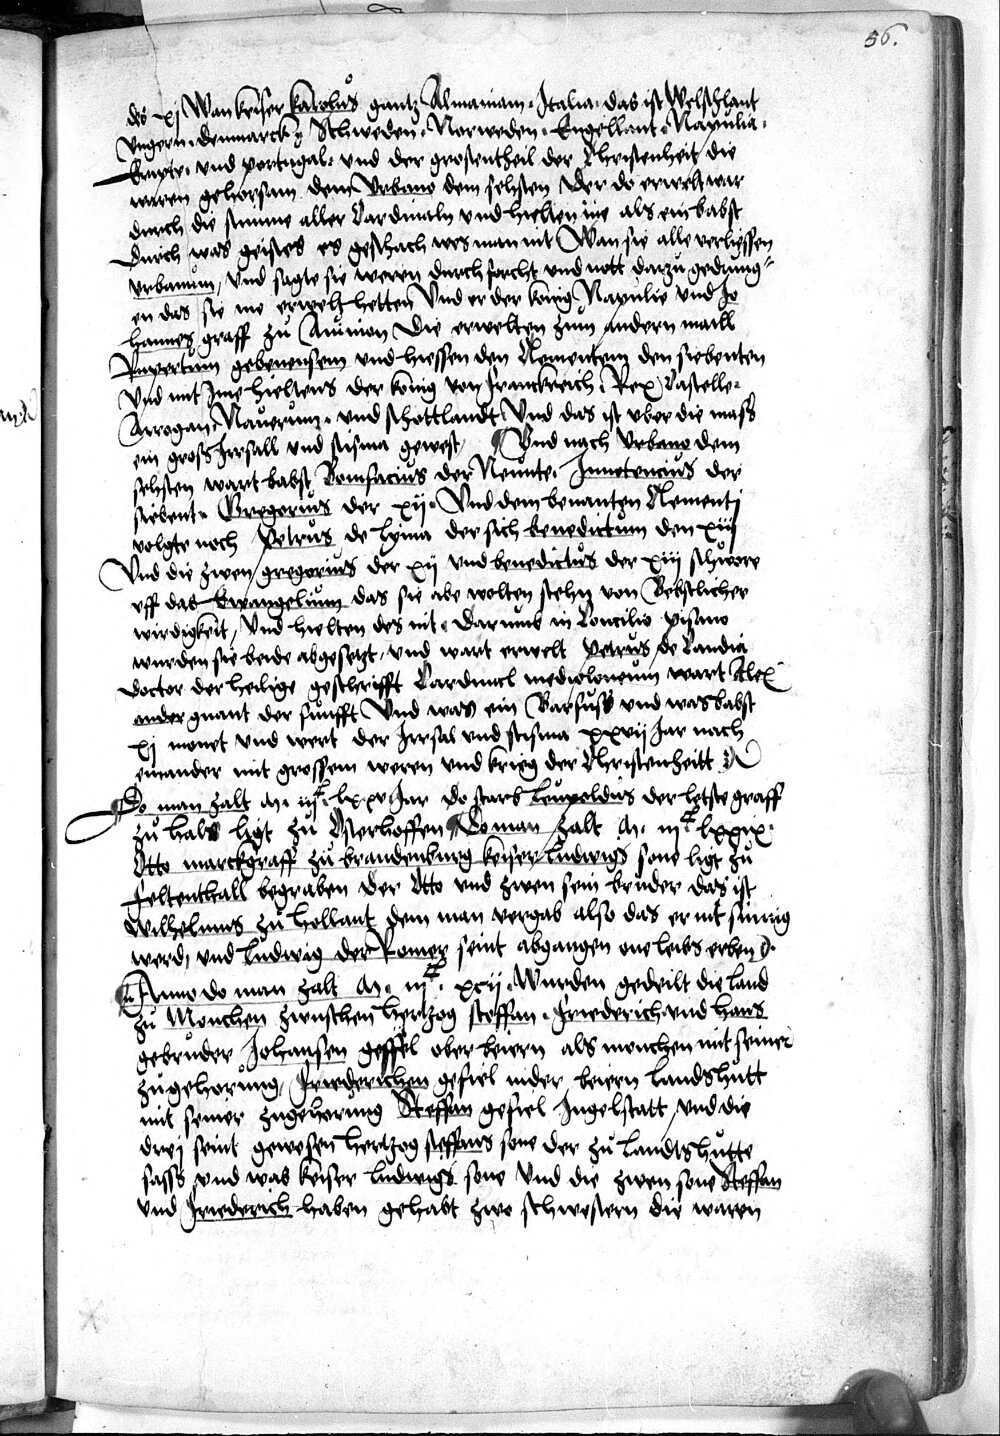 56.
des xj Wan keiser karolus gantz Almaniam. Italia. das ist Welschlant
Vngern. denmarck. Schweden. Norweden. Engellant. Napulia.
Cipern. vnd portugal. vnd der grossentheil der Christenheit die
waren gehorsam dem Vrbano dem sehsten Der do erwelt war
durch die stimme aller Cardinaln vnd hielten ine als ein babst
Durch was geistes es geschach weis man nit Wan sie alle verliessen
vrbanum, Vnd sagte sie weren durch forcht vnd nott darzu gedrung
en das sie ine erwelt hetten Vnd er der konig Napulie vnd Jo
hannes graff zu Auinion Die erwelten zum andern maill
Rupertum gebenensem vnd hiessen den Clementem den siebenten
Vnd mit Ime hieltens der konig von franckreich. Rex Castelle.
Arrogan. Nauerum. vnd schottlandt Vnd das ist vber die mass
ein gross Irrsall vnd scisma gewest, Vnd nach Vrbano dem
sehsten wart babst Bonifacius der Neunte. Innotencius der
siebent. Gregorius der xij. Vnd dem benanten Clementj
volgte noch Petrus de lyma der sich benedictum den xiij
Vnd die zwen gregorius der xij vnd benedictus der xiij schwore
vff das Ewangelium das sie abe wolten stehn von Bebstlicher
wirdigkeit, Vnd hielten des nit. Darumb in Concilio pisano
wurden sie beide abgesetzt, vnd wart erwelt petrus de Candia
doctor der heilige geschrifft Cardinal mediolonenm wart Alex
ander gnant der funfft Vnd was ein Barfuss vnd was babst
xj monet vnd wert der Irrsal vnd scisma xxvij Jar nach
einander mit grossem weren vnd krieg der Christenheitt
Do man zalt M. iijc lxxv Jar do starb leupoldus der letste graff
zu hals ligt zu Osterhoffen Do man zalt M. iijc lxxix.
Otto marckgraff zu brandenburg keiser Ludwigs sone ligt zu
Feltenthall begraben Der Otto vnd zwen sein bruder das ist
Wilhelmus zu hollant dem man vergab also das er nit sinnig
werd, vnd ludwig der Romer seint abgangen one leibs erben
Anno do man zalt M. iijc. xcij. Wurden gedeilt die land
zu Monchen zwuschen hertzog steffan. Friederich vnd hans
gebruder Johansen gefiel ober beiern als monchen mit seiner
zugehorung, Friederichen gefiel nider beiern landshutt
mit seiner zugehorung Steffan gefiel Ingelstatt, vnd die
drej seint gewesen hertzog steffans sone der zu landtshutte
sass vnd was keiser ludwigs sone Vnd die zwen sone Steffan
vnd Friederich haben gehabt zwo schwestern die waren